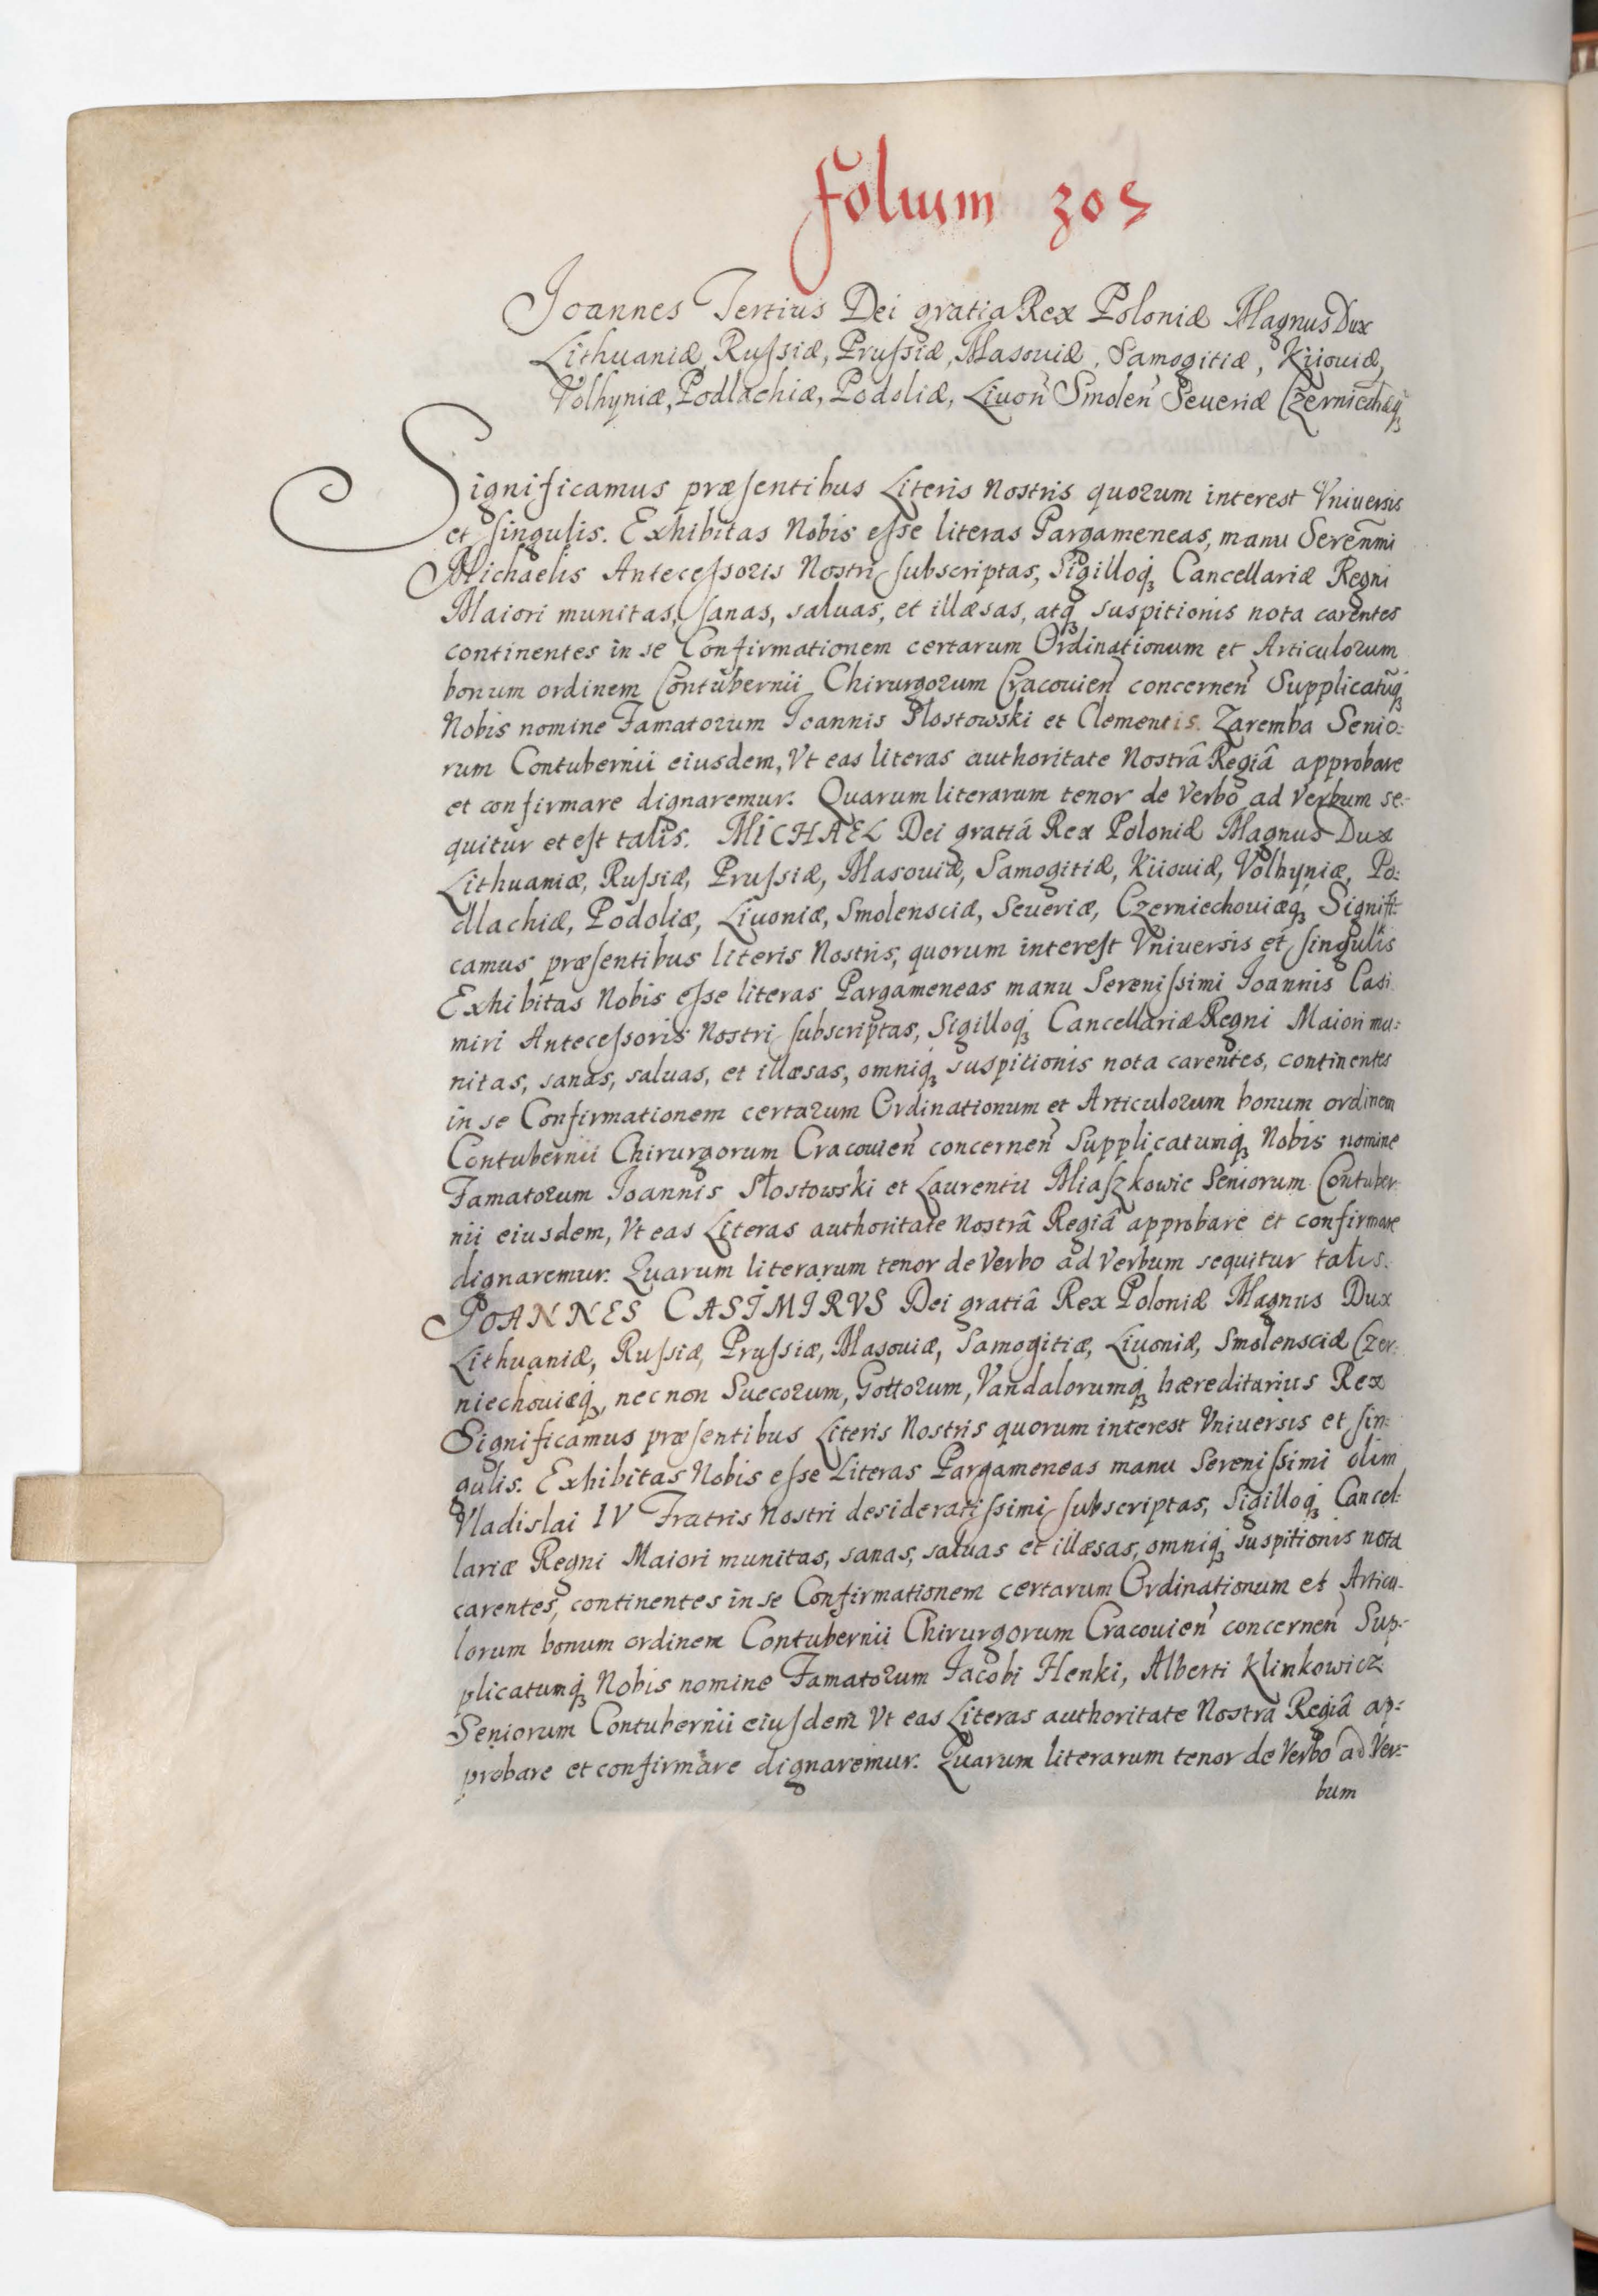 folium 305
Joannes Tertius Dei gratia Rex Poloniæ Magnus Dux
Lithuaniæ, Ruſsiæ, Pruſsiæ, Masouiæ, Samogitiæ, Kiiouiæ,
Volhyniæ, Podlachiæ, Podoliæ, Liuoñ Smoleñ Seueriæ Czerniechæq́ꝫ
Significamus præſentibus Literis Nostris quorum interest Vniuersis
et ſingulis. Exhibitas Nobis eſse literas Pargameneas, manu Sereñmi
Michaelis Anteceſsoris Nostri ſubscriptas, Sigilloq́ꝫ Cancellariæ Regni
Maiori munitas, ſanas, saluas, et illæsas, atq́ꝫ suspitionis nota carentes
continentes in se Confirmationem certarum Ordinationum et Articulorum
bonum ordinem Contubernii Chirurgorum Cracouieñ concerneñ Supplicatũq́ꝫ
Nobis nomine Famatorum Ioannis Słostowski et Clementis Zaremba Senio:
rum Contubernii eiusdem, Vt eas literas authoritate Nostrâ Regiâ approbare
et confirmare dignaremur. Quarum literarum tenor de Verbo ad Verbum se:
quitur et eſt talis. MICHAEL Dei gratiâ Rex Poloniæ Magnus Dux
Lithuaniæ, Ruſsiæ, Pruſsiæ, Masouiæ, Samogitiæ, Kiiouiæ, Volhyniæ, Po:
dlachiæ, Podoliæ, Liuoniæ, Smolensciæ, Seueriæ, Czerniechouiæq́ꝫ Signifi:
camus præſentibus literis Nostris, quorum intereſt Vniuersis et ſingulis
Exhibitas Nobis eſse literas Pargameneas manu Sereniſsimi Joannis Casi
miri Anteceſsoris Nostri ſubscriptas, Sigilloq́ꝫ Cancellariæ Regni Maiori mu:
nitas, sanas, saluas, et illæsas, omniq́ꝫ suspitionis nota carentes, continentes
in se Confirmationem certarum Ordinationum et Articulorum bonum ordinem
Contubernii Chirurgorum Cracouieñ concerneñ Supplicatumq́ꝫ Nobis nomine
Famatorum Joannis Słostowski et Laurentii Miaſzkowic Seniorum Contuber:
nii eiusdem, Vt eas Literas authoritate Nostrâ Regiâ approbare et confirmare
dignaremur. Quarum literarum tenor de Verbo ad Verbum sequitur talis.
JOANNES CASIMIRVS Dei gratiâ Rex Poloniæ Magnus Dux
Lithuaniæ, Ruſsiæ, Pruſsiæ, Masouiæ, Samogitiæ, Liuoniæ, Smolensciæ Czer:
niechouiæq́ꝫ, nec non Suecorum, Gottorum, Vandalorumq́ꝫ hæreditarius Rex
Significamus præſentibus Literis Nostris quorum interest Vniuersis et ſin:
gulis. Exhibitas Nobis eſse Literas Pargameneas manu Sereniſsimi olim
Vladislai IV Fratris Nostri desideratiſsimi ſubscriptas, Sigilloq́ꝫ Cancel:
lariæ Regni Maiori munitas, sanas, saluas et illæsas, omniq́ꝫ suspitionis nota
carentes, continentes in se Confirmationem certarum Ordinationum et Articu-
lorum bonum ordinem Contubernii Chirurgorum Cracouieñ concerneñ Sup:
plicatumq́ꝫ Nobis nomine Famatorum Jacobi Henki, Alberti Klinkowicz
Seniorum Contubernii eiuſdem Vt eas Literas authoritate Nostrâ Regiâ ap:
probare et confirmare dignaremur. Quarum literarum tenor de Verbo ad Ver:
bum